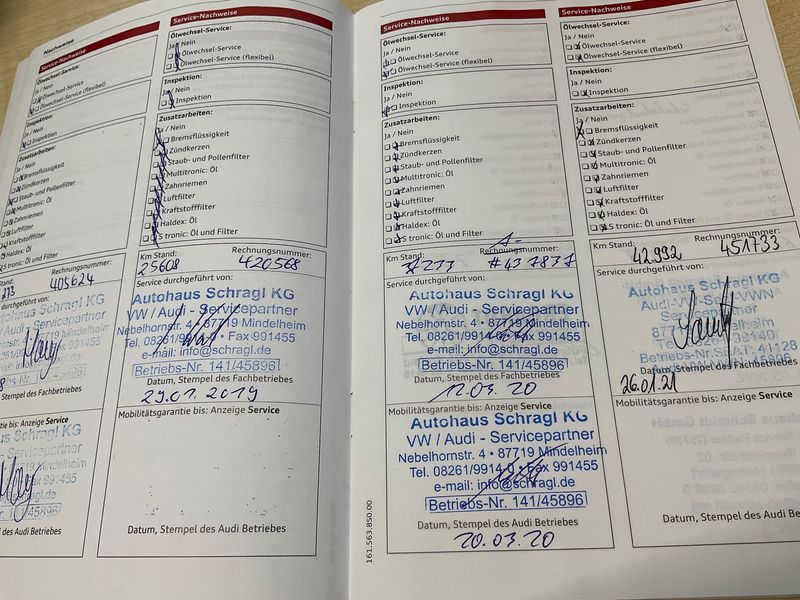 Nachweise
Service-Nachweise
Ölwechsel-Service:
Ja / Nein
Ölwechsel-Service
Ölwechsel-Service (flexibel)
Inspektion:
Ja / Nein
Inspektion
Zusatzarbeiten:
Ja / Nein
Bremsflüssigkeit
Zündkerzen
Staub- und Pollenfilter
Multitronic: Öl
Zahnriemen
Luftfilter
Kraftstofffilter
Haldex: Öl
S tronic: Öl und Filter
Rechnungsnummer:
405624
durchgeführt von:
Autohaus Schragl KG
/ Audi - Servicepartner
4 • 87719 Mindelheim
Stempel des Fachbetriebes
bis: Anzeige Service
Schragl KG
Servicepartner
Mindelheim
des Audi Betriebes
Service-Nachweise
Ölwechsel-Service:
Ja / Nein
Ölwechsel-Service
Ölwechsel-Service (flexibel)
Inspektion:
Ja / Nein
Inspektion
Zusatzarbeiten:
Ja / Nein
Bremsflüssigkeit
Zündkerzen
Staub- und Pollenfilter
Multitronic: Öl
Zahnriemen
Luftfilter
Kraftstofffilter
Haldex: Öl
S tronic: Öl und Filter
Km Stand: Rechnungsnummer:
25608 420568
Service durchgeführt von:
Autohaus Schragl KG
VW / Audi - Servicepartner
Nebelhornstr. 4 • 87719 Mindelheim
Tel. 08261/9914-0 • Fax 991455
e-mail: info@schragl.de
Betriebs-Nr. 141/45896
Datum, Stempel des Fachbetriebes
29.01.2019
Mobilitätsgarantie bis: Anzeige Service
Datum, Stempel des Audi Betriebes
Service-Nachweise
Ölwechsel-Service:
Ja / Nein
Ölwechsel-Service
Ölwechsel-Service (flexibel)
Inspektion:
Ja / Nein
Inspektion
Zusatzarbeiten:
Ja / Nein
Bremsflüssigkeit
Zündkerzen
Staub- und Pollenfilter
Multitronic: Öl
Zahnriemen
Luftfilter
Kraftstofffilter
Haldex: Öl
S tronic: Öl und Filter
Km Stand: Rechnungsnummer:
Service durchgeführt von:
Autohaus Schragl KG
VW / Audi - Servicepartner
Nebelhornstr. 4 • 87719 Mindelheim
Tel. 08261/9914-0 • Fax 991455
e-mail: info@schragl.de
Betriebs-Nr. 141/45896
Datum, Stempel des Fachbetriebes
12.03.20
Mobilitätsgarantie bis: Anzeige Service
Autohaus Schragl KG
VW / Audi - Servicepartner
Nebelhornstr. 4 • 87719 Mindelheim
Tel. 08261/9914-0 • Fax 991455
e-mail: info@schragl.de
Betriebs-Nr. 141/45896
Datum, Stempel des Audi Betriebes
20.03.20
161.563.850.00
Service-Nachweise
Ölwechsel-Service:
Ja / Nein
Ölwechsel-Service
Ölwechsel-Service (flexibel)
Inspektion:
Ja / Nein
Inspektion
Zusatzarbeiten:
Ja / Nein
Bremsflüssigkeit
Zündkerzen
Staub- und Pollenfilter
Multitronic: Öl
Zahnriemen
Luftfilter
Kraftstofffilter
Haldex: Öl
S tronic: Öl und Filter
Km Stand: Rechnungsnummer:
42.992 451733
Service durchgeführt von:
Autohaus Schragl KG
Datum, Stempel des Fachbetriebes
26.01.21
Mobilitätsgarantie bis: Anzeige Service
Datum, Stempel des Audi